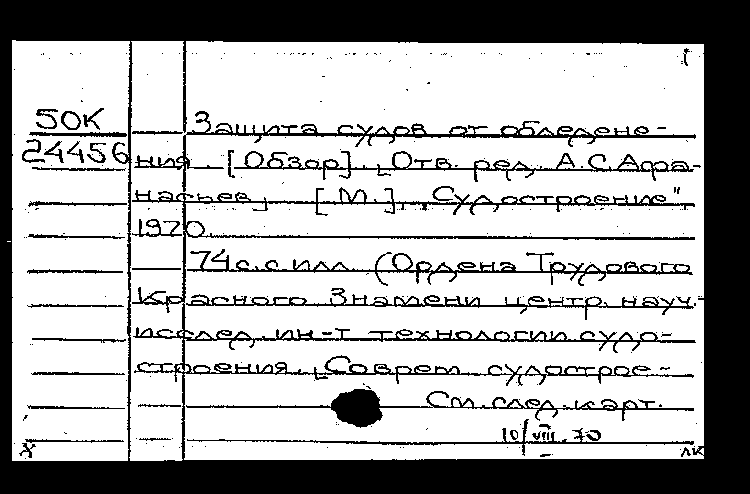 50К Защита судов от обледене-
24456 ния. [Обзор]. [Отв. ред. А.С.Афа-
насьев] [М.], "Судостроение",
1970.
74 с. с илл. (Ордена Трудового
Красного Знамени центр. науч.-
исслед. ин-т технологии судо-
строения. [Соврем. судострое-
См. след. карт.
10/VIII.70
X ЛК